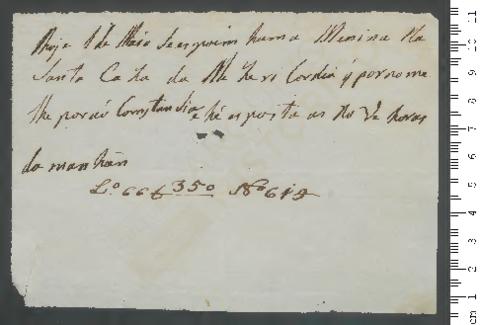 Hoje 1 de Maio Seespoim huma Menina Na
Santa Caza da Mizeri Cordia q̃ por nome
lhe poráó Constansia e hé esposta as No Ve horas
da manhãn
L.º 66 f 350 Nº 618